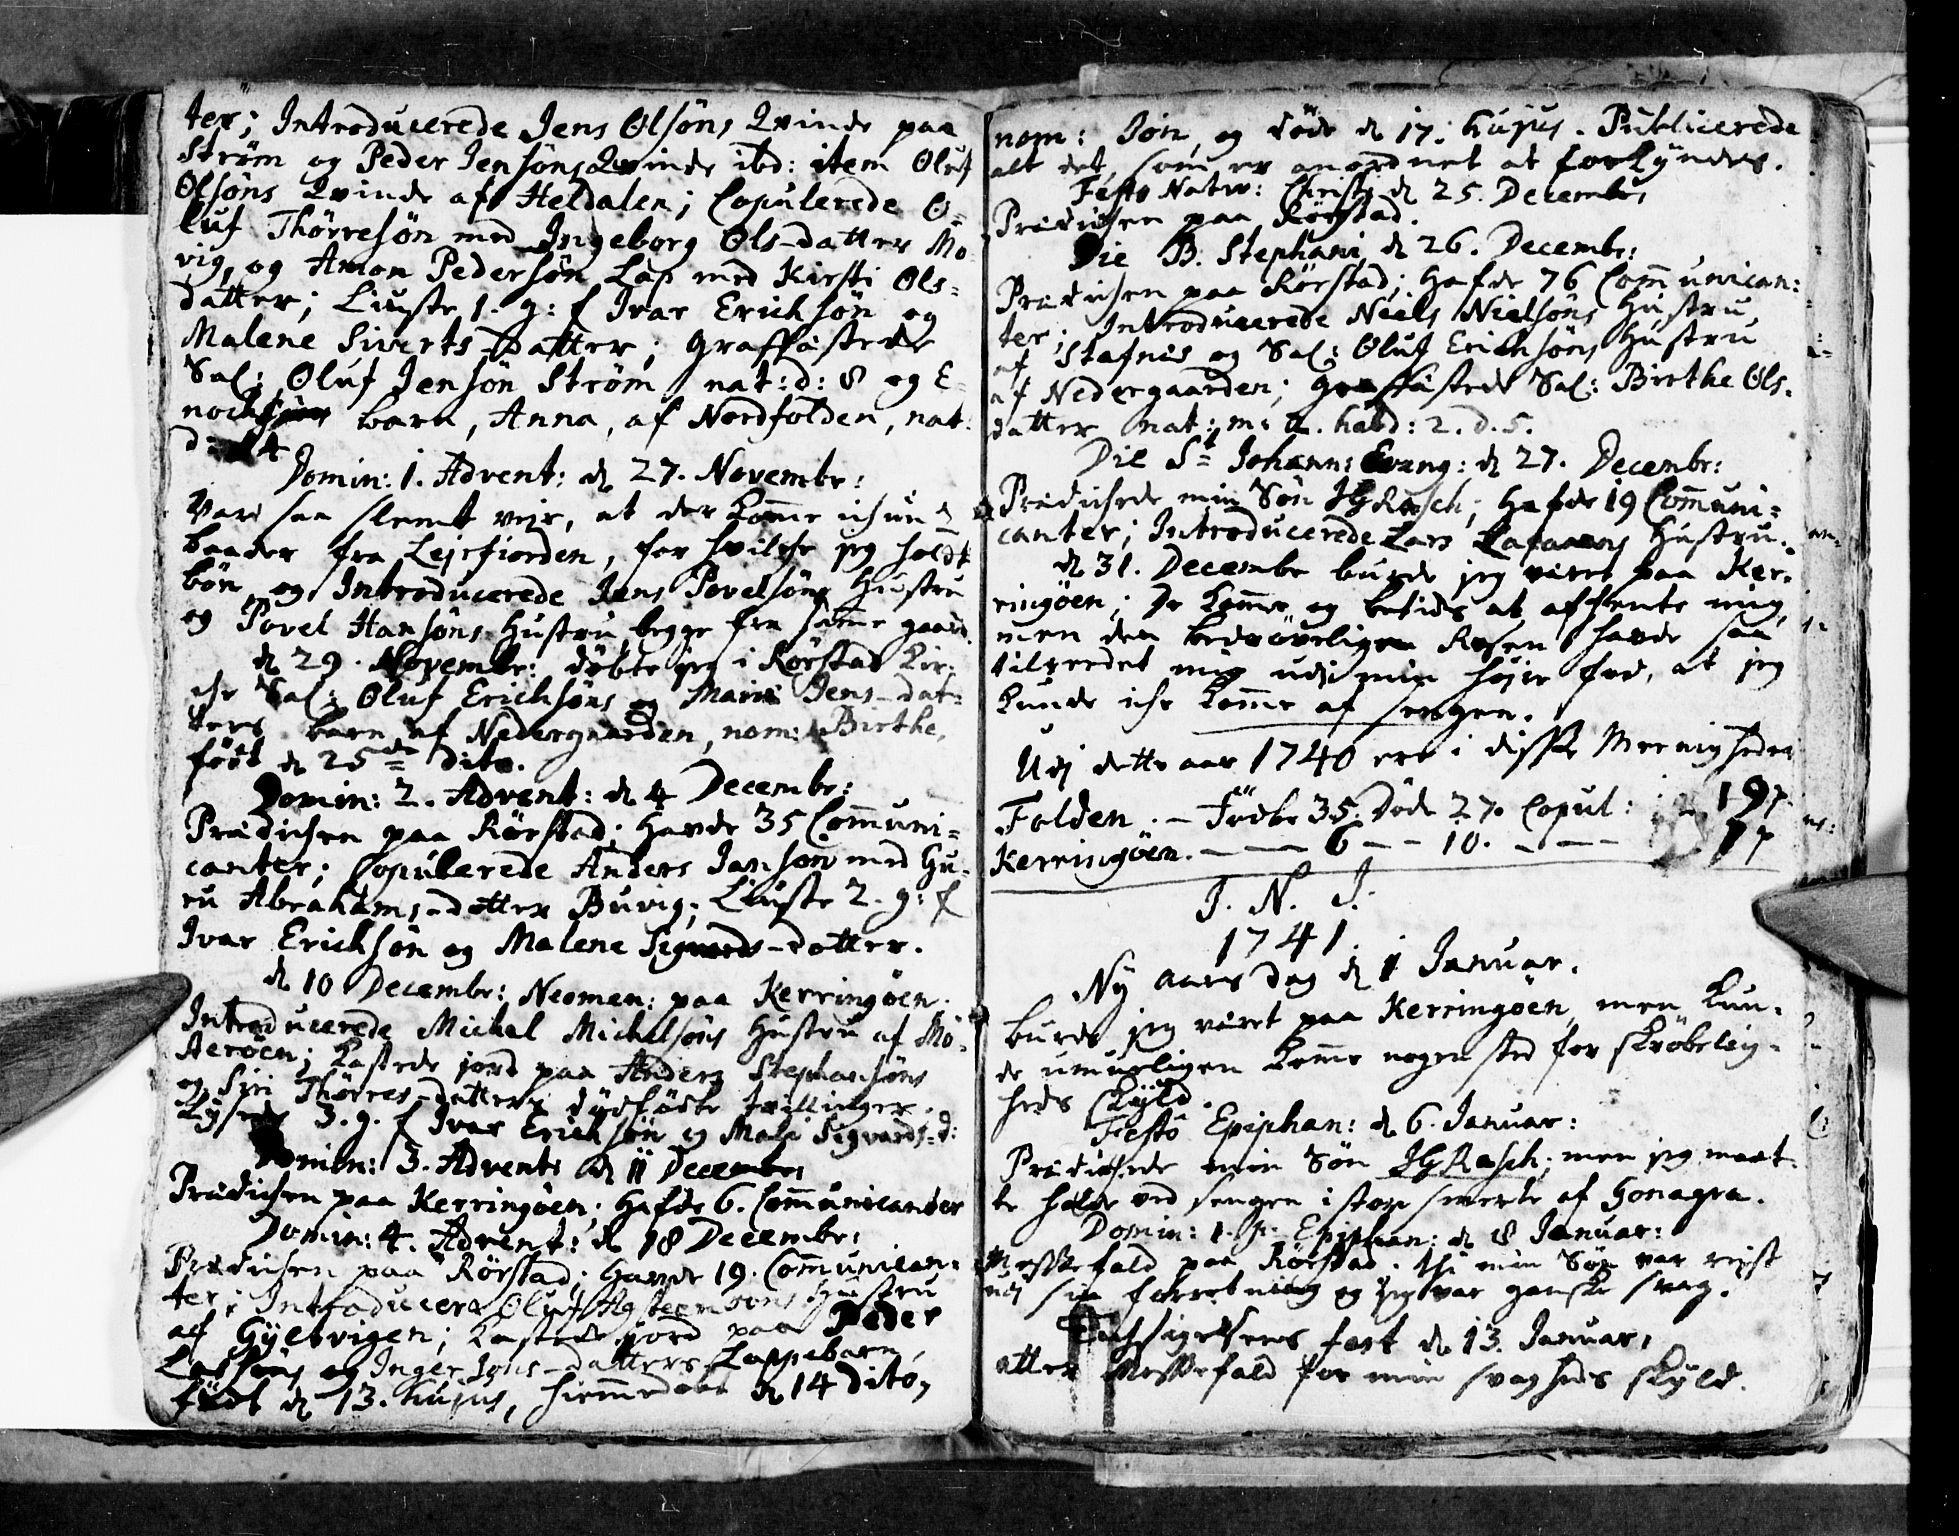 ter; Introducerede Jens Olsöns Qvinde paa
Ström og Peder Jensöns Qvinde ibd: item Oluf
Olsöns Qvinde af Heldalen; Copulerede O-
luf Thörresön med Ingeborg Ols-datter Mo-
vig, og Amon Pedersön Lap med Kirsti Ols-
datter; Liuste 1. g: f Ivar Erichsön og
Malene Siverts-Datter; Graffästede
Sal: Oluf Jensön Ström nat: d: 8 og E-
noch barn, Anna, af Nordfolden, nat:
d: 14
Domin: 1. Advent: d 27. Novembr:
Var saa slemt vejr, at der komme ichun 2
baader fra Lejrfiorden, for hvilche jeg holdt
bön og Introducerede Jens Povelsöns Hustru
og Povel Hansöns Hustru begge fra samme gaard.
d 29. Novembr: döbte jeg i Rörstad Kir-
che Sal: Oluf Erichsöns og Maria Jens-dat-
ters barn af Nedergaarden, nom: Birthe,
föd d 25de dito.
Domin: 2. Advent: d 4 Decembr:
Prædichen paa Rörstad; Havde 35 Communi-
canter; Copulerede Anders Janson med Gu-
ru Abrahams-datter Buvig; Liuste 2. g: f
Ivar Erichsön og Malene Sigvards-datter.
d 10 Decembr: Neomen: paa Kerringöen.
Introducerede Michel Michelsöns Hustru af Mo-
Aeröen; kastede jord paa Anders Stephansöns
og Siri Thörres-datters dödfödte tvillinger.
Lyste 3. g. f Ivar Erichsön og Mali Sigvards-d:
Domin: 3. Advent: d 11 Decembr:
Prædichen paa Kerringöen; Hafde 6. Communicanter
Domin: 4. Advent: d 18 Decembr:
Prædichen paa Rörstad; Havde 19. Communican-
ter; Introducera Oluf Hustru
af Gyelvigen; kastede jord paa Peder
Larsöns og Inger Jons-datters Lappebarn,
födt d 13. hujus, hiemmedöbt d 14 dito,
nom: Jön, og döde d 17. hujus. Publicerede
alt det, som er anordnet at forkyndes.
Festo Nativ: Christi d 25. Decembr:
Prædichen paa Rörstad.
Die B. Stephani d 26. Decembr:
Prædichen paa Rörstad; Hafde 76 Communican:
ter; Introducerede Niels Nielsöns Hustru
af Stafnes og Sal: Oluf Erichsöns Hustru
af Nedergaarden; Graffästede Sal: Birthe Ols-
datter nat: m: hebd: 2. d. 5.
Die St Johann: Evang: d 27. Decembr:
Prædichede min Sön JGRasch; Hafde 19 Communi-
canter; Introducerede Lars Hustru.
d 31. Decembr burde jeg være paa Ker-
ringöen; De komme og betids at afhente mig,
men den bedrövelige Rosen havde saa
tilreedet mig udi min höjre fod, at jeg
kunde iche komme af sengen.
Udj dette aar 1740 ere i disse Meenigheder
Folden. - Födte 35. Döde 27. Copul: 19 p
Kerringöen. - - 6 - - 10. - - - 1 p
J. N. J.
1741.
Ny aars dag d 1 Januar.
burde jeg været paa Kerringöen, men kun-
de umueligen komme nogen sted for skröbelig-
heds skyld.
Festo Epiphan: d 6. Januar:
Prædichede min Sön JGRasch; men jeg maat-
te holde ved sengen i stor smerte af Gonagra.
Domin: 1. p. Epiphan: d 8 Januar:
Messefald paa Rörstad. thi min Sön var rejst
udj sin forretning og jeg var ganske svag.
Tachsigelsens fest d 13. Januar,
atter Messefald for min svagheds skyld.